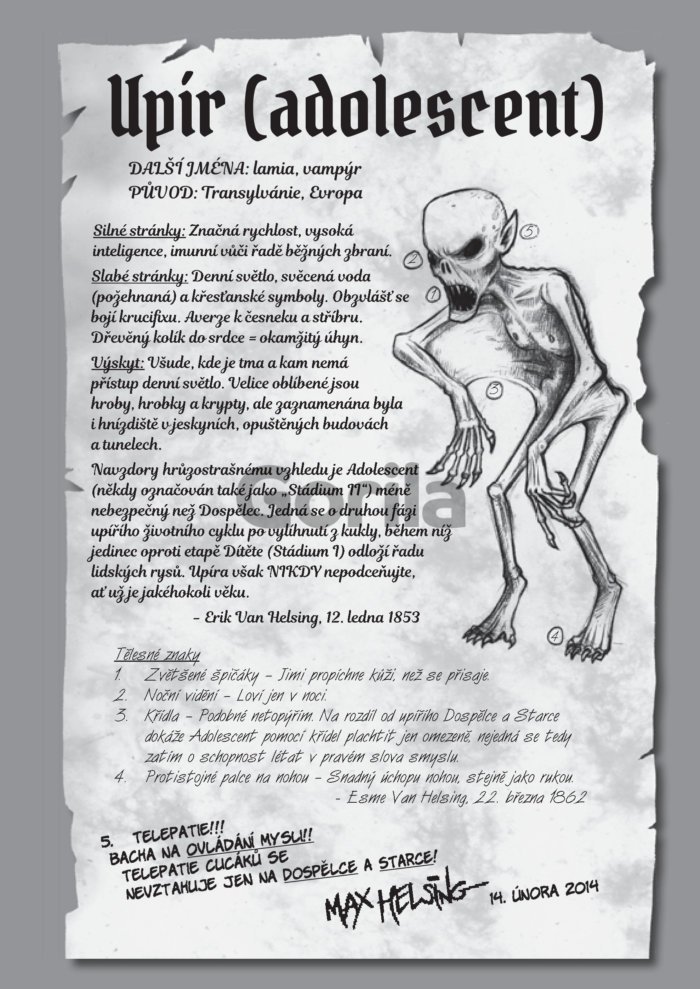 Upír (adolescent)
DALŠÍ JMÉNA: lamia, vampýr
PŮVOD: Transylvánie, Evropa
Silné stránky: Značná rychlost, vysoká
inteligence, imunní vůči řadě běžných zbraní.
Slabé stránky: Denní světlo, svěcená voda
(požehnaná) a křesťanské symboly. Obzvlášť se
bojí krucifixu. Averze k česneku a stříbru.
Dřevěný kolík do srdce = okamžitý úhyn.
Výskyt: Všude, kde je tma a kam nemá
přístup denní světlo. Velice oblíbené jsou
hroby, hrobky a krypty, ale zaznamenána byla
i hnízdiště v jeskyních, opuštěných budovách
a tunelech.
Navzdory hrůzostrašnému vzhledu je Adolescent
(někdy označován také jako „Stádium II“) méně
nebezpečný než Dospělec. Jedná se o druhou fázi
upířího životního cyklu po vylíhnutí z kukly, během níž
jedinec oproti etapě Dítěte (Stádium I) odloží řadu
lidských rysů. Upíra však NIKDY nepodceňujte,
ať už je jakéhokoli věku.
– Erik Van Helsing, 12. ledna 1853
2
5
1
3
4
Gorila
Tělesné znaky
1. Zvětšené špičáky – Jimi propíchne kůži, než se přisaje.
2. Noční vidění – Loví jen v noci.
3. Křídla – Podobné netopýřím. Na rozdíl od upířího Dospělce a Starce
dokáže Adolescent pomocí křídel plachtit jen omezeně, nejedná se tedy
zatím o schopnost létat v pravém slova smyslu.
4. Protistojné palce na nohou – Snadný úchop nohou, stejně jako rukou.
- Esme Van Helsing, 22. března 1862
5. TELEPATIE!!!
BACHA NA OVLÁDÁNÍ MYSLI!!
TELEPATIE CUCÁKŮ SE
NEVZTAHUJE JEN NA DOSPĚLCE A STARCE!
MAX HELSING 14. ÚNORA 2014